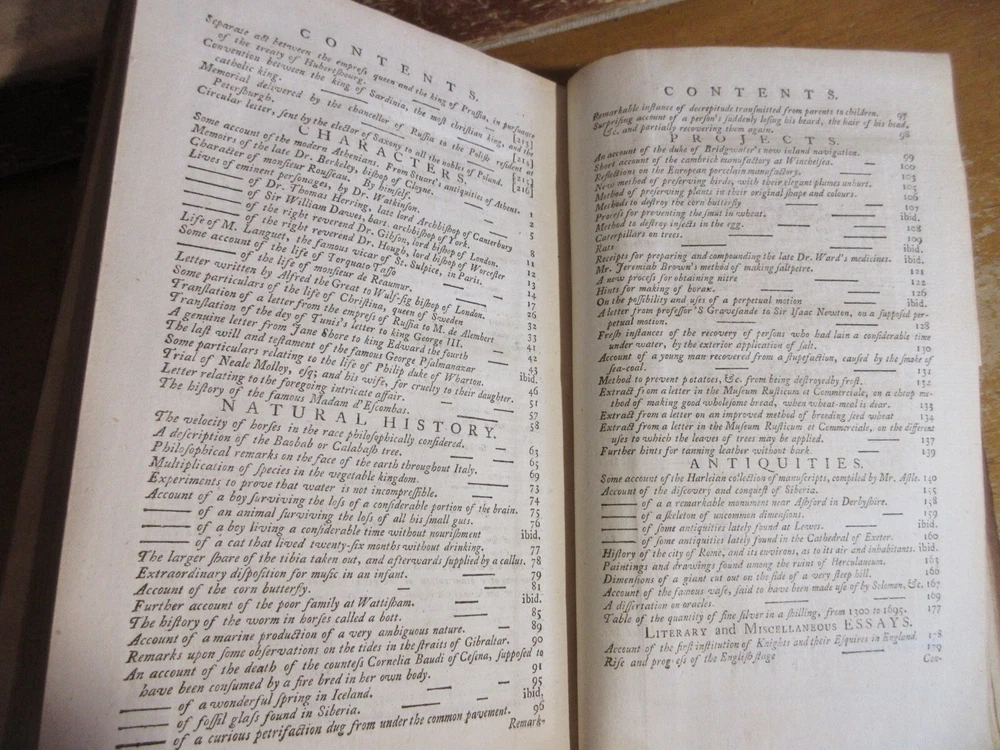 CONTENTS.
Separate act between the empreſs queen and the king of Pruſſia, in purſuance
of the treaty of Hubertſbourg. [213]
Convention between the king of Sardinia, the moſt chriſtian king, and the
catholic king. [214]
Memorial delivered by the chancellor of Ruſſia to the Poliſh reſident at
Peterſburgh.
Circular letter, ſent by the elector of Saxony to all the nobles of Poland. [216]
CHARACTERS.
Some account of the modern Athenians, from Stuart's antiquities of Athens. 1
Memoirs of the late Dr. Berkeley, biſhop of Cloyne. 2
Character of monſieur Rouſſeau. By himſelf. 5
Lives of eminent perſonages, by Dr. Watkinſon.
—— of Dr. Thomas Herring, late lord Archbiſhop of Canterbury 8
—— of Sir William Dawes, bart. archbiſhop of York. 11
—— of the right reverend Dr. Gibſon, lord biſhop of London. 12
—— of the right reverend Dr. Hough, lord biſhop of Worceſter 13
Life of M. Languet, the famous vicar of St. Sulpice, in Paris. 14
Some account of the life of Torquato Taſſo 17
—— of the life of monſieur de Reaumur. 26
Letter written by Alfred the Great to Wulf-ſig biſhop of London. 32
Some particulars of the life of Chriſtina, queen of Sweden 33
Tranſlation of a letter from the empreſs of Ruſſia to M. de Alembert 41
Tranſlation of the dey of Tunis's letter to king George III. 42
A genuine letter from Jane Shore to king Edward the fourth 43
The laſt will and teſtament of the famous George Pſalmanazar ibid.
Some particulars relating to the life of Philip duke of Wharton. 46
Trial of Neale Molloy, eſq; and his wife, for cruelty to their daughter. 51
Letter relating to the foregoing intricate affair. 57
The hiſtory of the famous Madam d'Eſcombas. 58
NATURAL HISTORY.
The velocity of horſes in the race philoſophically conſidered. 63
A deſcription of the Baobab or Calabaſh tree. 65
Philoſophical remarks on the face of the earth throughout Italy. 69
Multiplication of ſpecies in the vegetable kingdom. 73
Experiments to prove that water is not incompreſſible. 74
Account of a boy ſurviving the loſs of a conſiderable portion of the brain. 75
—— of an animal ſurviving the loſs of all his ſmall guts. 76
—— of a boy living a conſiderable time without nouriſhment ibid.
—— of a cat that lived twenty-ſix months without drinking. 77
The larger ſhare of the tibia taken out, and afterwards ſupplied by a callus. 78
Extraordinary diſpoſition for muſic in an infant. 79
Account of the corn butterfly. 81
Further account of the poor family at Wattiſham. ibid.
The hiſtory of the worm in horſes called a bott. 85
Account of a marine production of a very ambiguous nature. 89
Remarks upon ſome obſervations on the tides in the ſtraits of Gibraltar. 90
An account of the death of the counteſs Cornelia Baudi of Ceſena, ſuppoſed to
have been conſumed by a fire bred in her own body. 91
—— of a wonderful ſpring in Iceland. 95
—— of foſſil glaſs found in Siberia. ibid.
—— of a curious petrifaction dug from under the common pavement. 96
Remark-
CONTENTS.
Remarkable inſtance of decrepitude tranſmitted from parents to children. 97
Surpriſing account of a perſon's ſuddenly loſing his beard, the hair of his head,
&c. and partially recovering them again. 98
PROJECTS.
An account of the duke of Bridgwater's new inland navigation. 99
Short account of the cambrick manufactory at Wincheſea. 100
Reflections on the European porcelain manufactory. 103
New method of preſerving birds, with their elegant plumes unhurt. 105
Method of preſerving plants in their original ſhape and colours. 106
Methods to deſtroy the corn butterfly 107
Proceſs for preventing the ſmut in wheat. ibid.
Method to deſtroy inſects in the egg. 108
Caterpillars on trees. 109
Rats ibid.
Receipts for preparing and compounding the late Dr. Ward's medicines. ibid.
Mr. Jeremiah Brown's method of making ſaltpetre. 121
A new proceſs for obtaining nitre 122
Hints for making of borax. 126
On the poſſibility and uſes of a perpetual motion ibid.
A letter from profeſſor 'S Graveſande to Sir Iſaac Newton, on a ſuppoſed per-
petual motion. 128
Freſh inſtances of the recovery of perſons who had lain a conſiderable time
under water, by the exterior application of ſalt. 130
Account of a young man recovered from a ſtupefaction, cauſed by the ſmoke of
ſea-coal. 131
Method to prevent potatoes, &c. from being deſtroyed by froſt. 132
Extract from a letter in the Muſeum Ruſticum et Commerciale, on a cheap me-
thod of making good wholeſome bread, when wheat-meal is dear. 133
Extract from a letter on an improved method of breeding ſeed wheat 134
Extract from a letter in the Muſeum Ruſticum et Commerciale, on the different
uſes to which the leaves of trees may be applied. 137
Further hints for tanning leather without bark. 139
ANTIQUITIES.
Some account of the Harleian collection of manuſcripts, compiled by Mr. Aſtle. 140
Account of the diſcovery and conqueſt of Siberia. 155
—— of a a remarkable monument near Aſhford in Derbyſhire. 158
—— of a ſkeleton of uncommon dimenſions. 159
—— of ſome antiquities lately found at Lewes. ibid.
—— of ſome antiquities lately found in the Cathedral of Exeter. 160
Hiſtory of the city of Rome, and its environs, as to its air and inhabitants. ibid.
Paintings and drawings found among the ruins of Herculaneum. 163
Dimenſions of a giant cut out on the ſide of a very ſteep hill. 166
Account of the famous vaſe, ſaid to have been made uſe of by Solomon, &c. 167
A diſſertation on oracles. 169
Table of the quantity of fine ſilver in a ſhilling, from 1300 to 1695. 177
LITERARY and MISCELLANEOUS ESSAYS.
Account of the firſt inſtitution of Knights and their Eſquires in England 178
Riſe and progreſs of the Engliſh ſtage 179
Con-